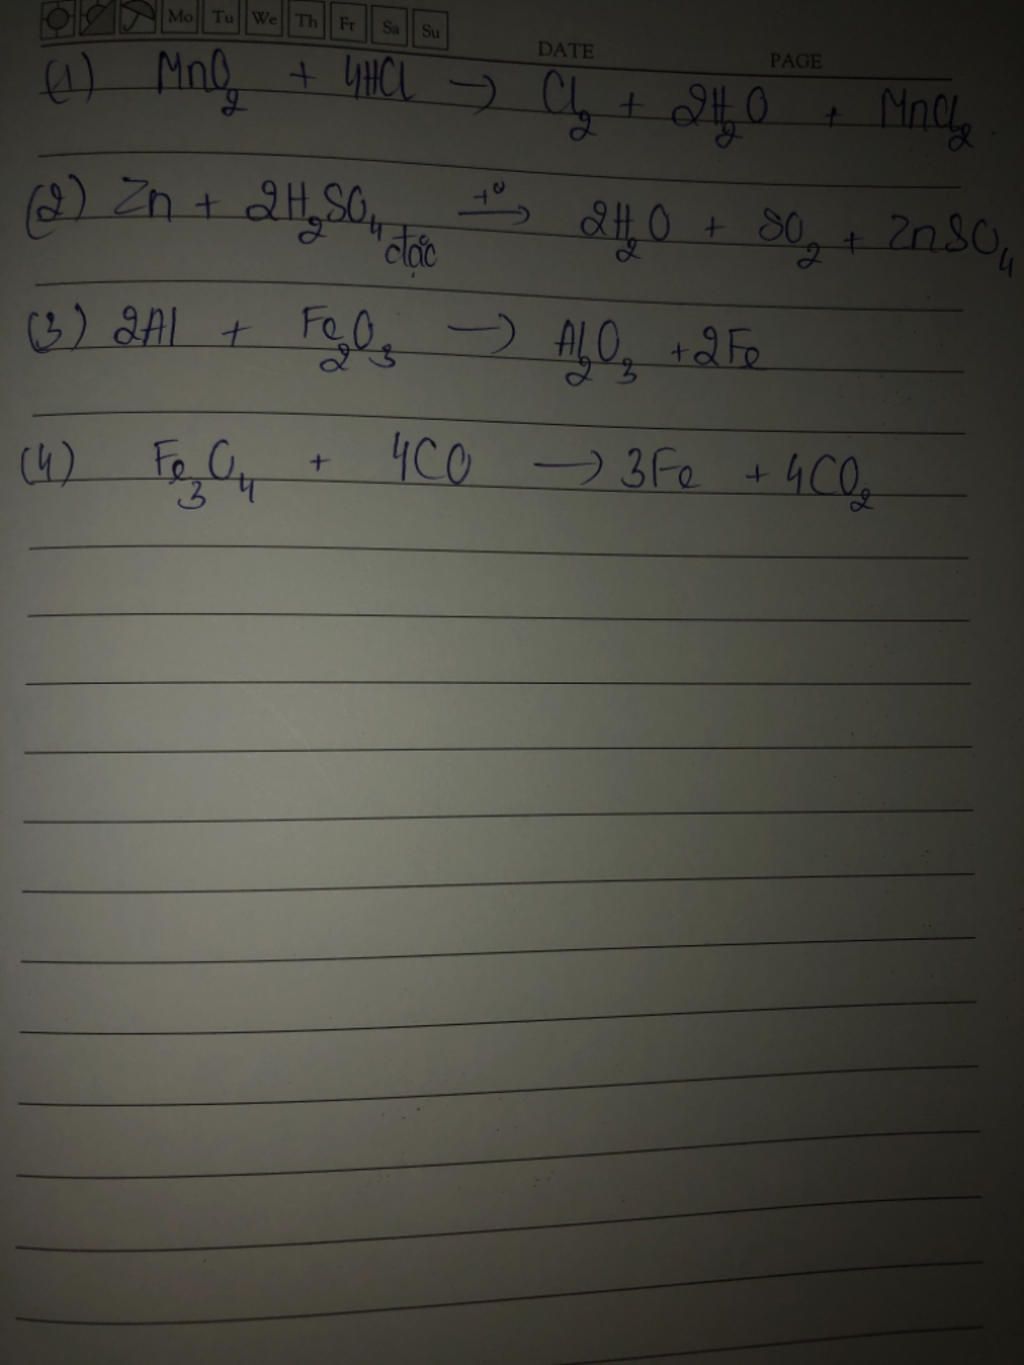 Mo Tu We Th Fr Sa Su
DATE PAGE
(1) MnO₂ + 4HCl → Cl₂ + 2H₂O + MnCl₂
(2) Zn + 2H₂SO₄ đặc →(t°) 2H₂O + SO₂ + ZnSO₄
(3) 2Al + Fe₂O₃ → Al₂O₃ + 2Fe
(4) Fe₃O₄ + 4CO → 3Fe + 4CO₂